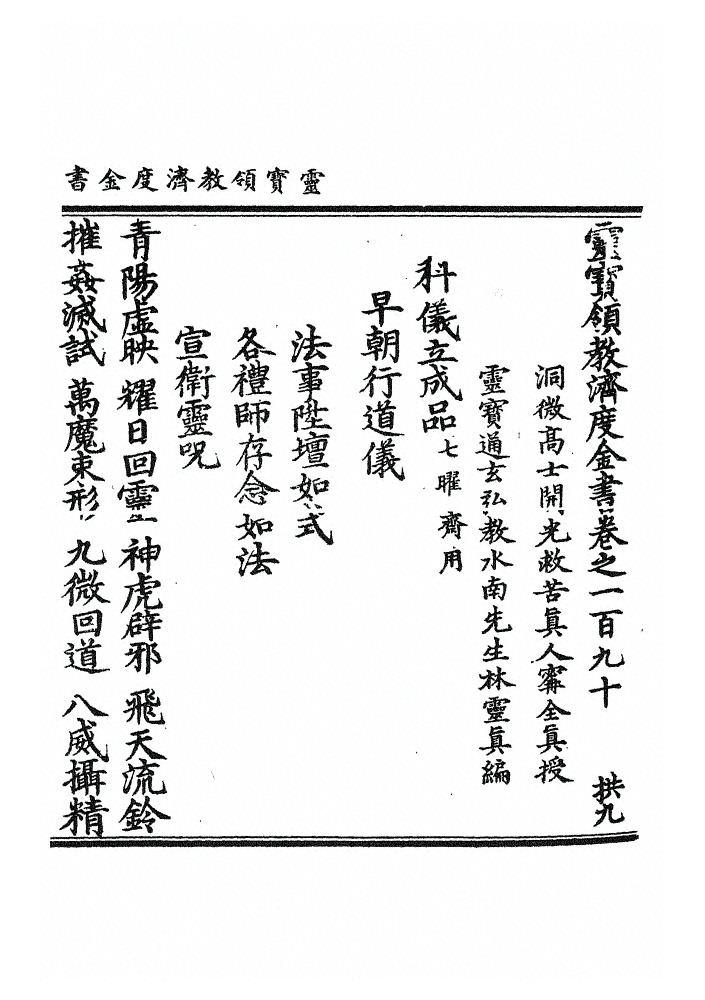 靈寶領教濟度金書
靈寶領教濟度金書卷之一百九十 拱九
洞微高士開光救苦眞人寗全眞授
靈寶通玄弘教水南先生林靈眞編
科儀立成品 七曜齋用
早朝行道儀
法事陞壇如式
各禮師存念如法
宣衛靈呪
青陽虛映 耀日回靈 神虎辟邪 飛天流鈴
摧姦滅試 萬魔束形 九微回道 八威攝精